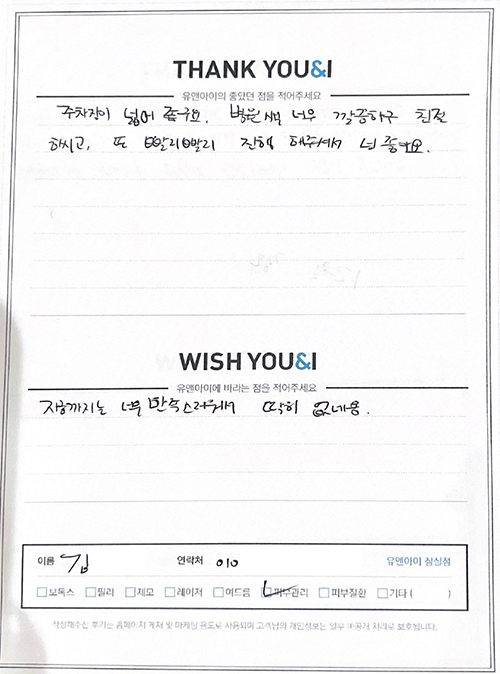 THANK YOU&I
유앤아이의 좋았던 점을 적어주세요
주차장이 넓어 좋구요. 병원 너무 깔끔하구 친절
하시고, 또 빨리빨리 진행 해주셔서 넘 좋아요.
WISH YOU&I
유앤아이에 바라는 점을 적어주세요
지금까지는 너무 만족스러워서 딱히 없네용.
이름 김 연락처 010 유앤아이 잠실점
보톡스 필러 제모 레이저 여드름 피부관리 피부질환 기타 ( )
작성해주신 후기는 홈페이지 게재 및 마케팅 용도로 사용되며 고객님의 개인정보는 일부 비공개 처리로 보호됩니다.